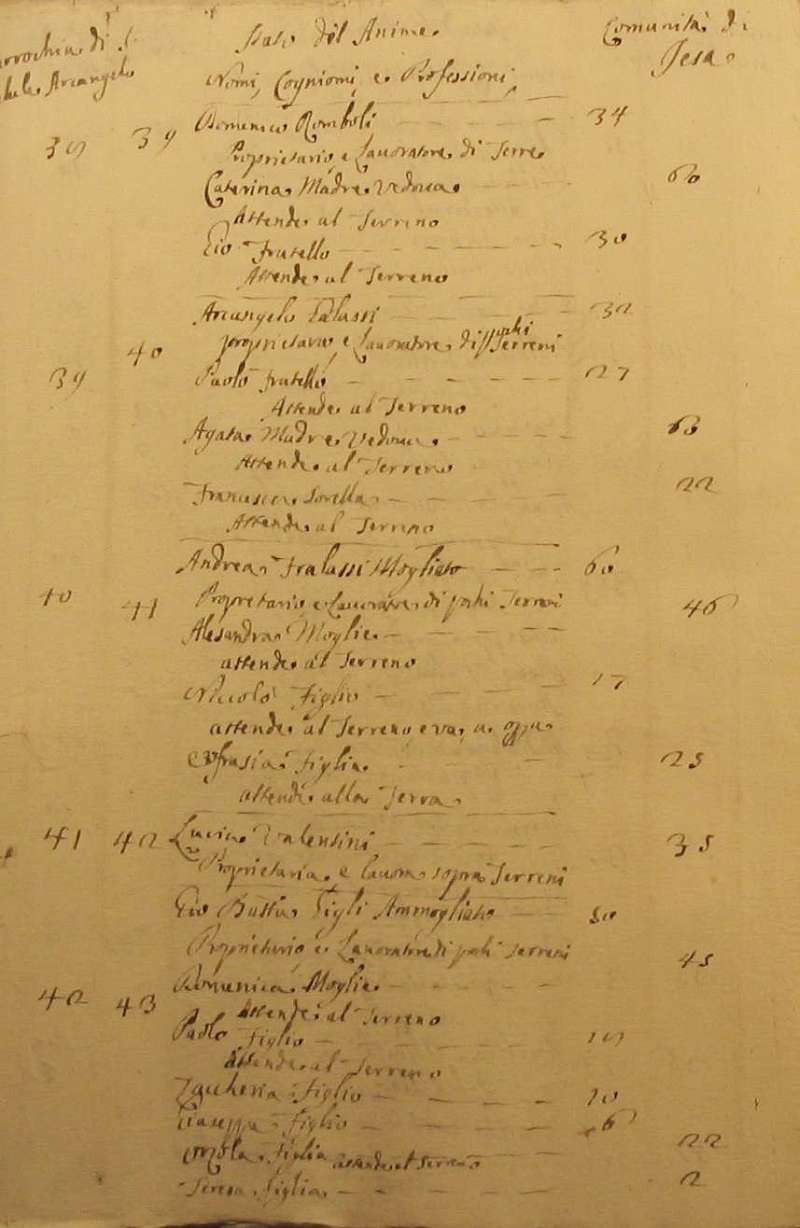 Parrochia di S. Stato dell Anime. Comunità di
Arcangelo Nomi, Cogniomi, e Professioni, Jesa
Domenico Romboli 34
39 39 Proprietario e Lavoratore di Terre
Caterina Madre Vedova 60
Attende al Terreno
Gio Fratello 30
Attende al Terreno
Arcangelo 32
40 proprietario e Lavoratore di pochi Terreni
39 Paolo fratello 27
Attende al Terreno
Agata Madre Vedova 63
Attende al Terreno
Francesca Sorella 22
Attende al Terreno
Andrea Fralassi Mogliato 60
40 41 Propretario e Lavoratore di pochi Terreni 46
Alesandra Moglie
attende al Terreno
Niccolò Figlio 17
attende al Terreno e va a
Figlia 25
attende alla Terra
41 42 Lucia Valentini 35
Proprietaria e lavora sopra Terreni
Gio Batta Figli Ammogliato 50
Proprietario e Lavoratore di pochi Terreni 45
Domenica Moglie
42 43 Attende al Terreno
Paolo Figlio 19
Attende al Terreno
Zaccheria Figlio 10
Giuseppe Figlio 6
Orsola Figlia attende al Terreno 22
Teresa Figlia 2